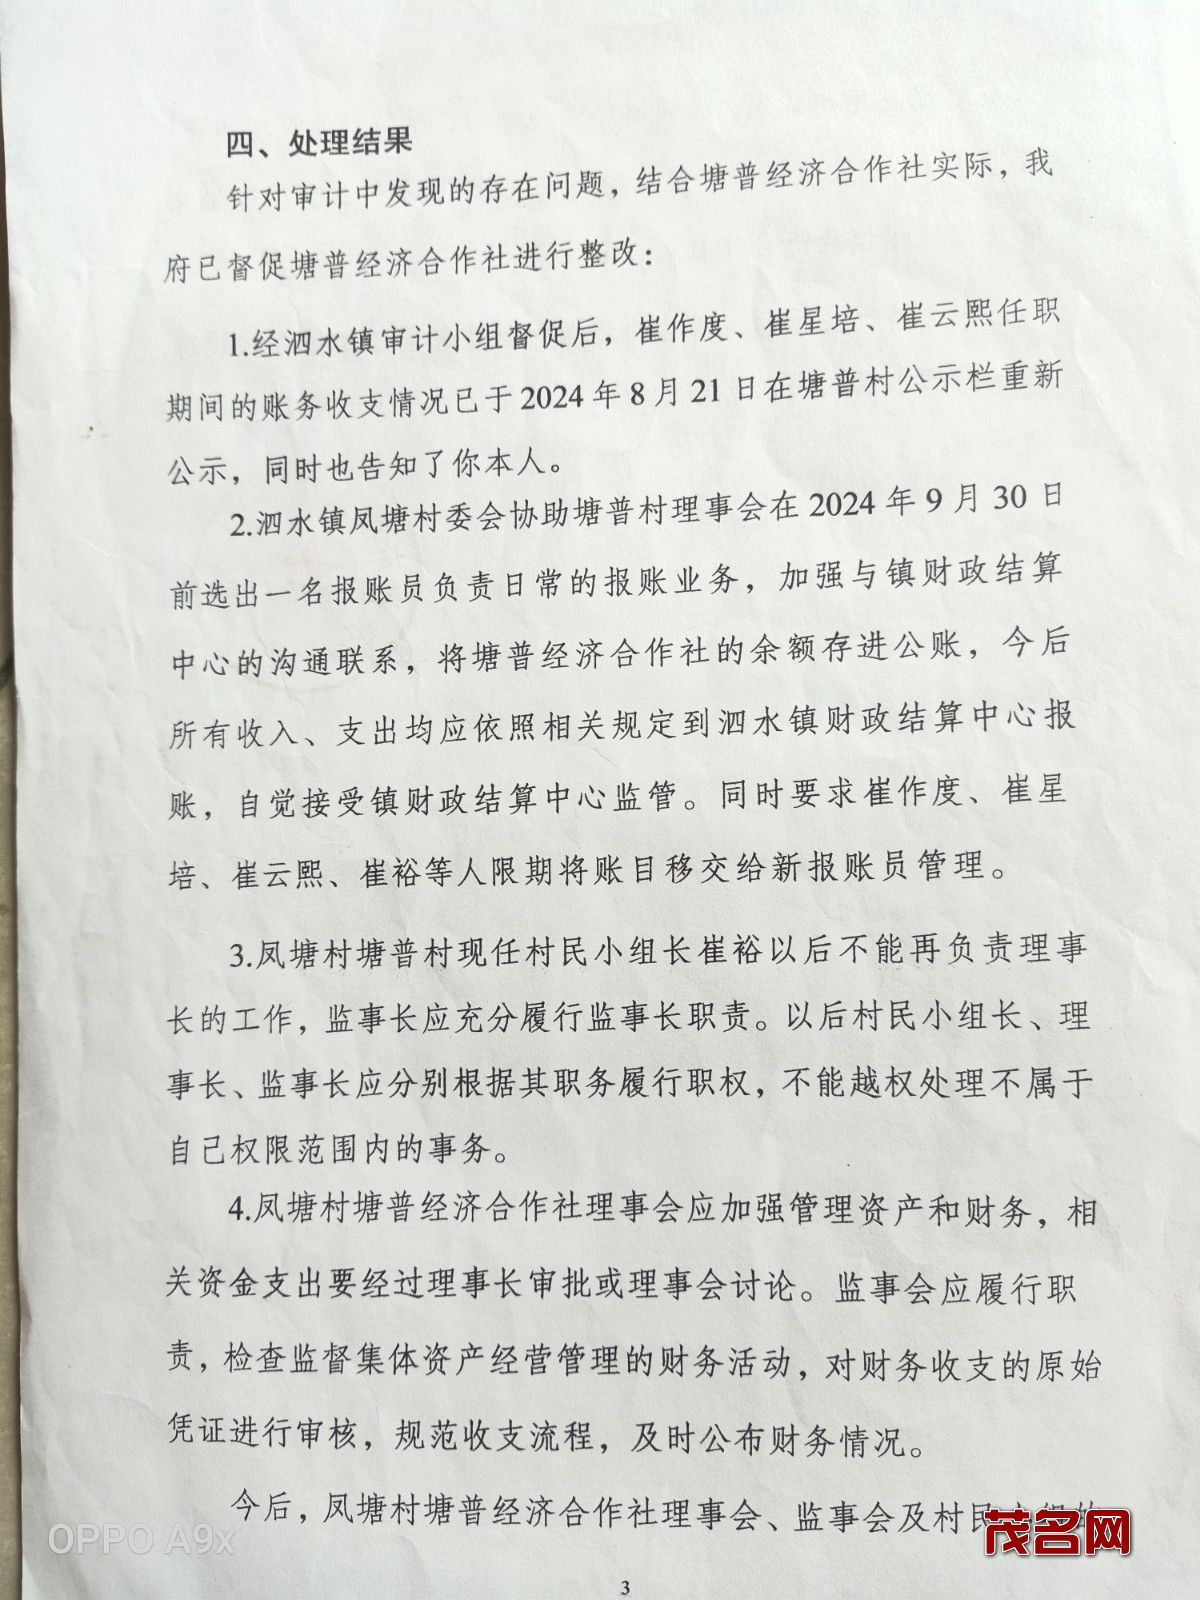 四、处理结果
针对审计中发现的存在问题，结合塘普经济合作社实际，我
府已督促塘普经济合作社进行整改：
1.经泗水镇审计小组督促后，崔作度、崔星培、崔云熙任职
期间的账务收支情况已于2024年8月21日在塘普村公示栏重新
公示，同时也告知了你本人。
2.泗水镇凤塘村委会协助塘普村理事会在2024年9月30日
前选出一名报账员负责日常的报账业务，加强与镇财政结算
中心的沟通联系，将塘普经济合作社的余额存进公账，今后
所有收入、支出均应依照相关规定到泗水镇财政结算中心报
账，自觉接受镇财政结算中心监管。同时要求崔作度、崔星
培、崔云熙、崔裕等人限期将账目移交给新报账员管理。
3.凤塘村塘普村现任村民小组长崔裕以后不能再负责理事
长的工作，监事长应充分履行监事长职责。以后村民小组长、理
事长、监事长应分别根据其职务履行职权，不能越权处理不属于
自己权限范围内的事务。
4.凤塘村塘普经济合作社理事会应加强管理资产和财务，相
关资金支出要经过理事长审批或理事会讨论。监事会应履行职
责，检查监督集体资产经营管理的财务活动，对财务收支的原始
凭证进行审核，规范收支流程，及时公布财务情况。
今后，凤塘村塘普经济合作社理事会、监事会及村民
OPPO A9x
茂名网
3